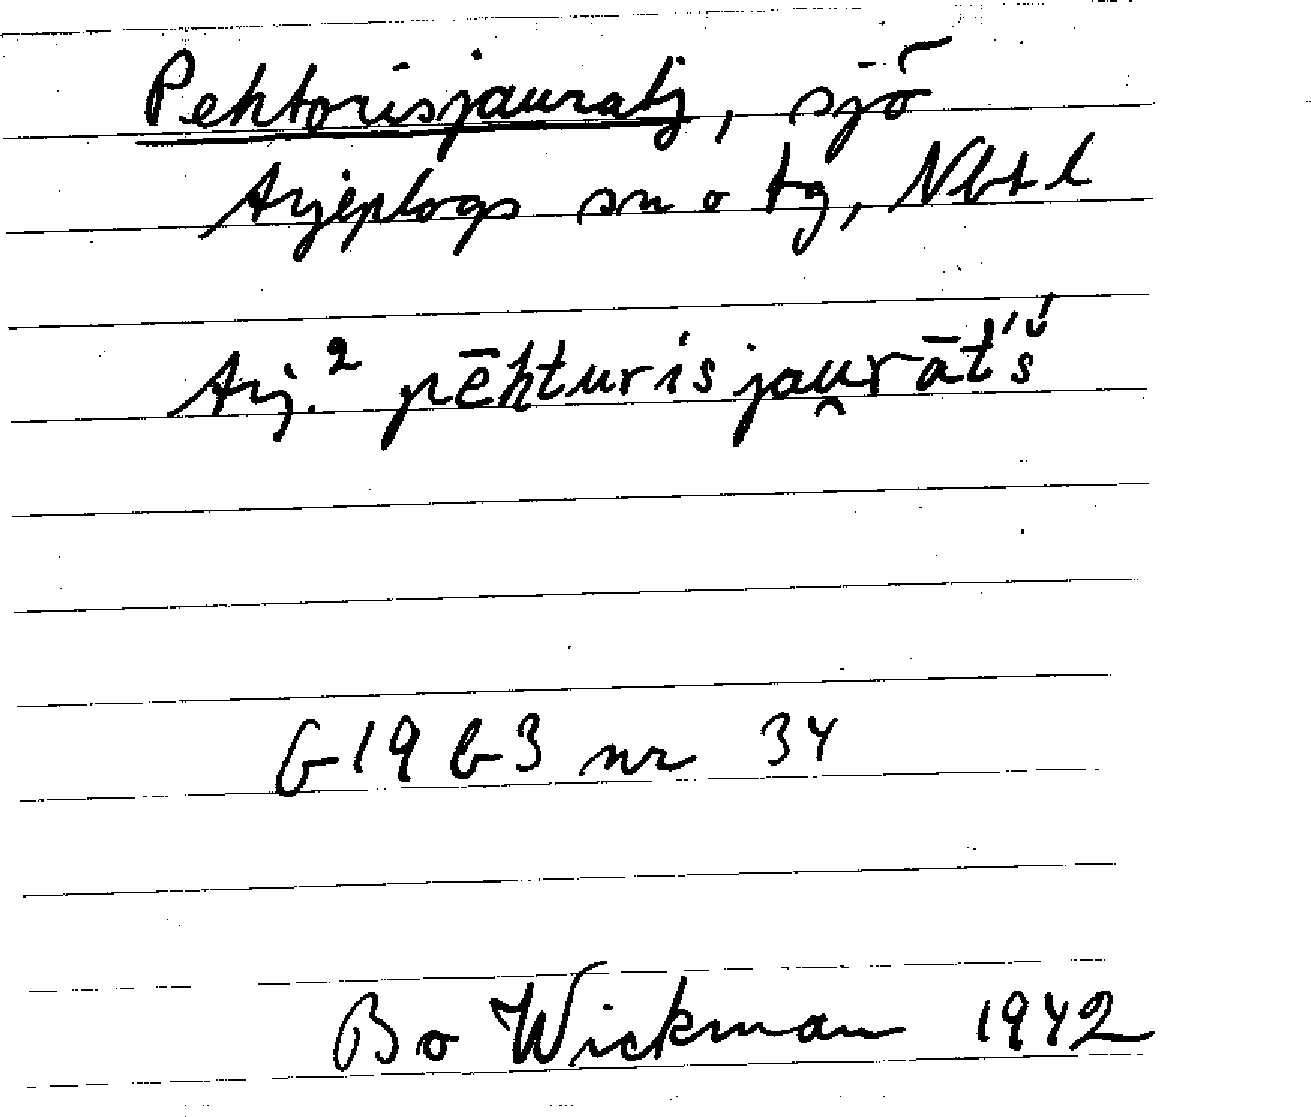 Pehtorisjauratj, sjö
Arjeplogs sn o tg, Nbtl
Arj.² pēhturisjau̯rāt́š́
G19 b3 nr 34
Bo Wickman 1942